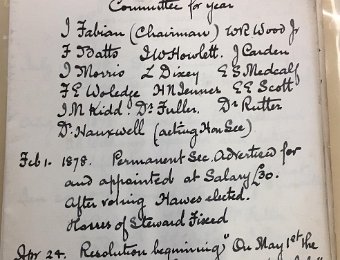 Committee for year
J Fabian (Chairman) W R Wood Jr
F Batts J W Howlett. J Carden
J Morris L Dixey E S Medcalf
F E Woledge H N Jenner E E Scott
J. M Kidd. Dr. Fuller. Dr Rutter
Dr Hauxwell (acting Hon Sec)
Feb 1. 1878. Permanent Sec. Advertised for
and appointed at Salary £30.
After voting Hawes elected.
Hours of Steward Fixed
Apr 24. Resolution beginning "On May 1st the